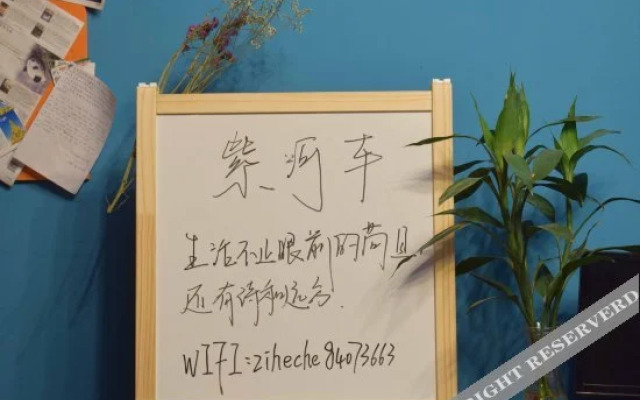 紫河车
生活不止眼前的苟且，
还有诗和远方.
WIFI:ziheche84073663
RIGHT RESERVERD